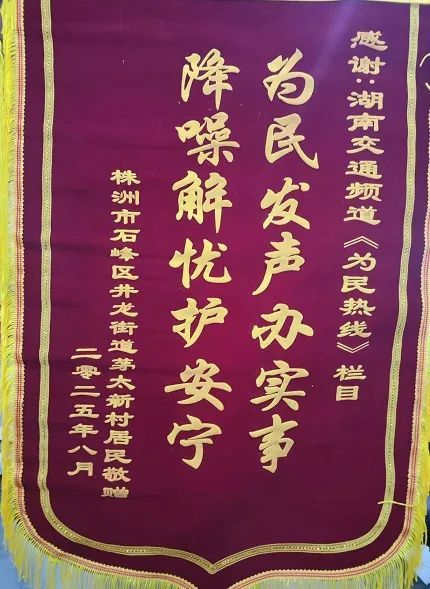 感谢：湖南交通频道《为民热线》栏目
为民发声办实事
降噪解忧护安宁
株洲市石峰区井龙街道茅太新村居民敬赠
二零二五年八月